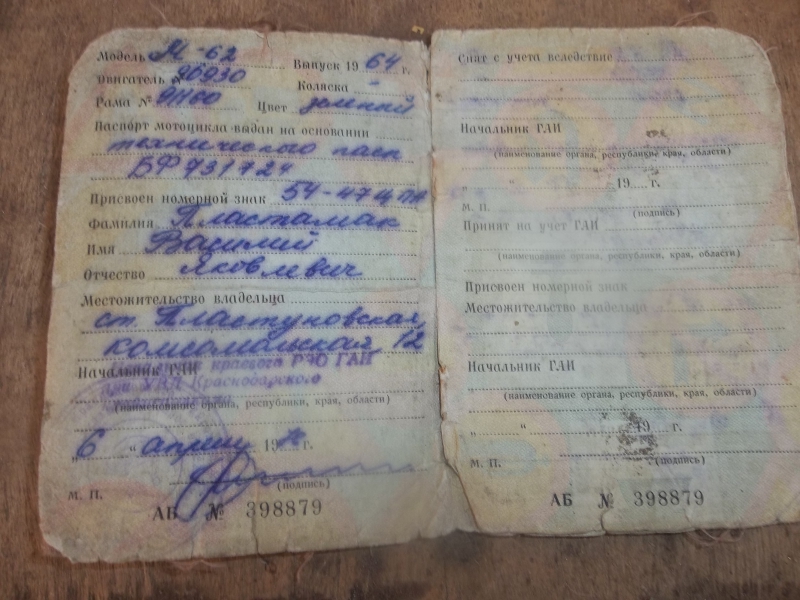 Модель М-62 Выпуск 1964 г.
Двигатель № 90930 Коляска
Рама № 91160 Цвет зеленый
Паспорт мотоцикла выдан на основании
технического пасп
ВФ 931724
Присвоен номерной знак 54-47
Фамилия Пластамак
Имя Василий
Отчество Яковлевич
Местожительство владельца
ст. Пластуновская,
комсомольская, 12
Начальник ГАИ краевого РЭО ГАИ
УВД Краснодарского
(наименование органа, республики, края, области)
„6“ апреля 19 г.
(подпись)
М. П.
АБ № 398879
Снят с учета вследствие
Начальник ГАИ
(наименование органа, республики края, области)
„ “ 19 г.
М. П.
(подпись)
Принят на учет ГАИ
(наименование органа, республики, края, области)
Присвоен номерной знак
Местожительство владельца
Начальник ГАИ
(наименование органа, республики, края, области)
„ “ 19 г.
М. П. (подпись)
АБ № 398879